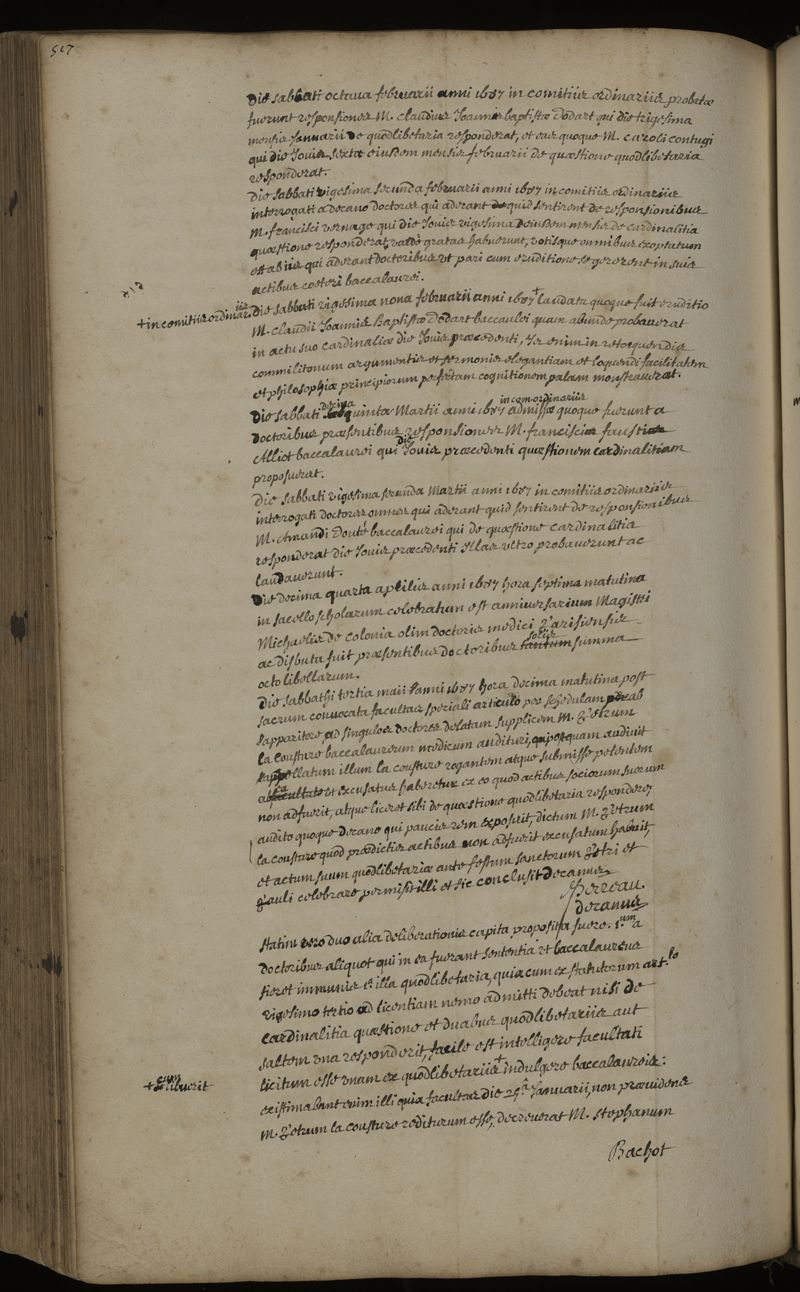 517
Die sabbati octava februarii anni 1687 in comitiis ordinariis probatæ
fuerunt responsiones M. claudius Joannis baptistæ Dodart qui die trigesima
mensis Januarii de quodlibetaria responderat, et eas quoque M. caroli contugi
qui die Jouis sexta eiusdem mensis februarii de quæstione quodlibetaria
responderat.
Die sabbati vigesima secunda februarii anni 1687 in comitiis ordinariis
interrogati a decano doctores qui aderant de quid sentirent de responsionibus
M. francisci vernage qui die Jouis vigesima eiusdem mensis de cardinalitia
quæstione responderat, valde gratas habuerunt, votisque omnibus exoptatum
est ab iis qui aderant doctoribus ut pari cum eruditione se gererent in suis
actibus cæteri baccalaurei.
+ in comitiis ordinariis
Die sabbati vigesima nona februarii anni 1687 + laudata quoque fuit eruditio
M. claudii Joannis Baptistæ Dodart baccalaurei quam abunde probauerat
in actu suo cardinalitiæ die Jouis præcedenti, is enim in retorquendis
commilitonum argumentis et sermonis elegantiam et loquendi facilitatem
et philosophiæ principiorum perfectam cognitionem palam monstrauerat.
Die sabbati decima quinta Martii anni 1687 in com. ordinariis admissæ quoque fuerunt a
doctoribus præsentibus responsiones M. francisci faustini
Alliot baccalaurei qui die Jouis præcedenti quæstionem cardinalitiam
proposuerat.
Die sabbati vigesima secunda Martii anni 1687 in comitiis ordinariis
interrogati doctores omnes qui aderant quid sentirent de responsionibus
M. Amandi Douté baccalaurei qui de quæstione cardinalitia
responderat die Jouis præcedenti illas ultro probauerunt ac
laudauerunt.
Die decima quarta aprilis anni 1687 hora septima matutina
in sacello scholarum celebratum est anniuersarium Magistri
Michaelis de colonia olim doctoris medici Parisiensis
ac distributa fuit præsentibus doctoribus tantum solis summa
octo libellarum.
Die sabbathi tertia maii anni 1687 hora decima matutina post
sacrum conuocata facultas speciali articulo per schedulam ab
apparitore ad singulos doctores delatam supplicem M. Petrum
la cousture baccalaureum medicum auditura, postquam audiuit
appellatum illum la cousture rogantem atque submisse petentem
a facultate ut excusatus haberetur ex eo quod actibus sociorum suorum
non adfuerit, atque liceret sibi de quæstione quodlibetaria respondere,
audito quoque decano qui paucis rem exposuit, dictum M. Petrum
la cousture quod prædictis actibus non adfuerit excusatum habuit,
et actum suum quodlibetariæ ante festum sanctorum Petri et
Pauli celebrare permisit illi et sic conclusit decanus
Perreau.
decanus
Statim vero duo alia deliberationis capita proposita fuere. 1.um a
doctoribus aliquot qui in ea fuerant sententia ut baccalaureus
fieret immunis ab illa quodlibetaria, quia cum ex statutorum art.lo
vigesimo tertio ad licentiam nemo admitti debeat nisi de
cardinalitia quæstione et duabus quodlibetariis aut
saltem una responderit, facile est intelligere facultati
licitum esse unam ex quodlibetariis + indulgere baccalaureis:
+ cum libuerit
existimabant enim illi quia facultas die 25.a Januarii, non præuidens
M. Petrum la cousture rediturum esse, decreuerat M. Stephanum
Bachot